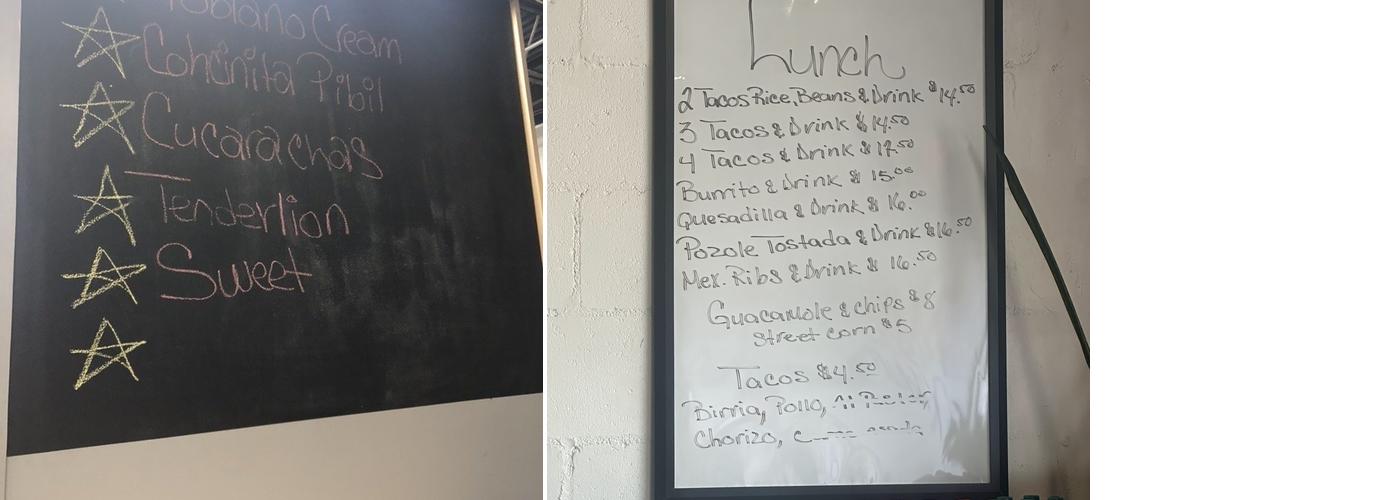 Poblano Cream
Cohcinita Pibil
Cucarachas
Tenderlion
Sweet
Lunch
2 Tacos Rice, Beans & Drink $14.50
3 Tacos & Drink $14.50
4 Tacos & Drink $17.50
Burrito & Drink $15.00
Quesadilla & Drink $16.00
Pozole Tostada & Drink $16.50
Mex. Ribs & Drink $16.50
Guacamole & chips $8
street corn $5
Tacos $4.50
Birria, Pollo, Al Pastor,
Chorizo,